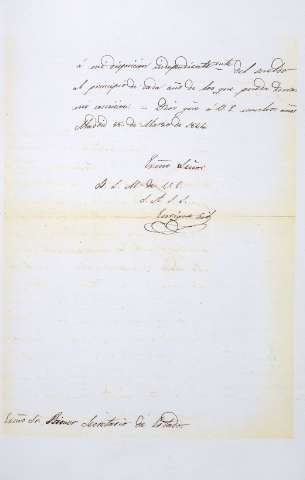 á mi disposicion independiente mte del sueldo
al principio de cada año de los que pueda durar
mi comision. = Dios güe á V.E. muchos años
Madrid 18 de Marzo de 1844
Exmo Señor
B. S. M. de V.E.
S. A. S. S.
Enrique Gil
Exmo Sr. Primer Secretario de Estado